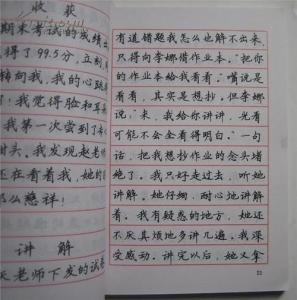 收 获
期末考试的成绩出
得了99.5分,立刻,
转向我,我的心跳
!我觉得脸和耳
我第一次尝到了
甜头。我发现赵老
还在看着我,她的
那么慈祥!
讲 解
天老师下发的试卷
有道错题我怎么也解不出来,
只得向李娜借作业本。“把你
的作业本给我看看。”嘴说是
看看,其实是想抄。但李娜
说:“来,我给你讲讲,光看
可能不会全看得明白。”一句
话,把我想抄作业的念头堵
绝了。我只好走过去,听她
讲解。她仔细、耐心地讲解
着。我有疑惑的地方,她还
不厌其烦地多讲几遍。我深
受感动。讲完以后,她又拿
53